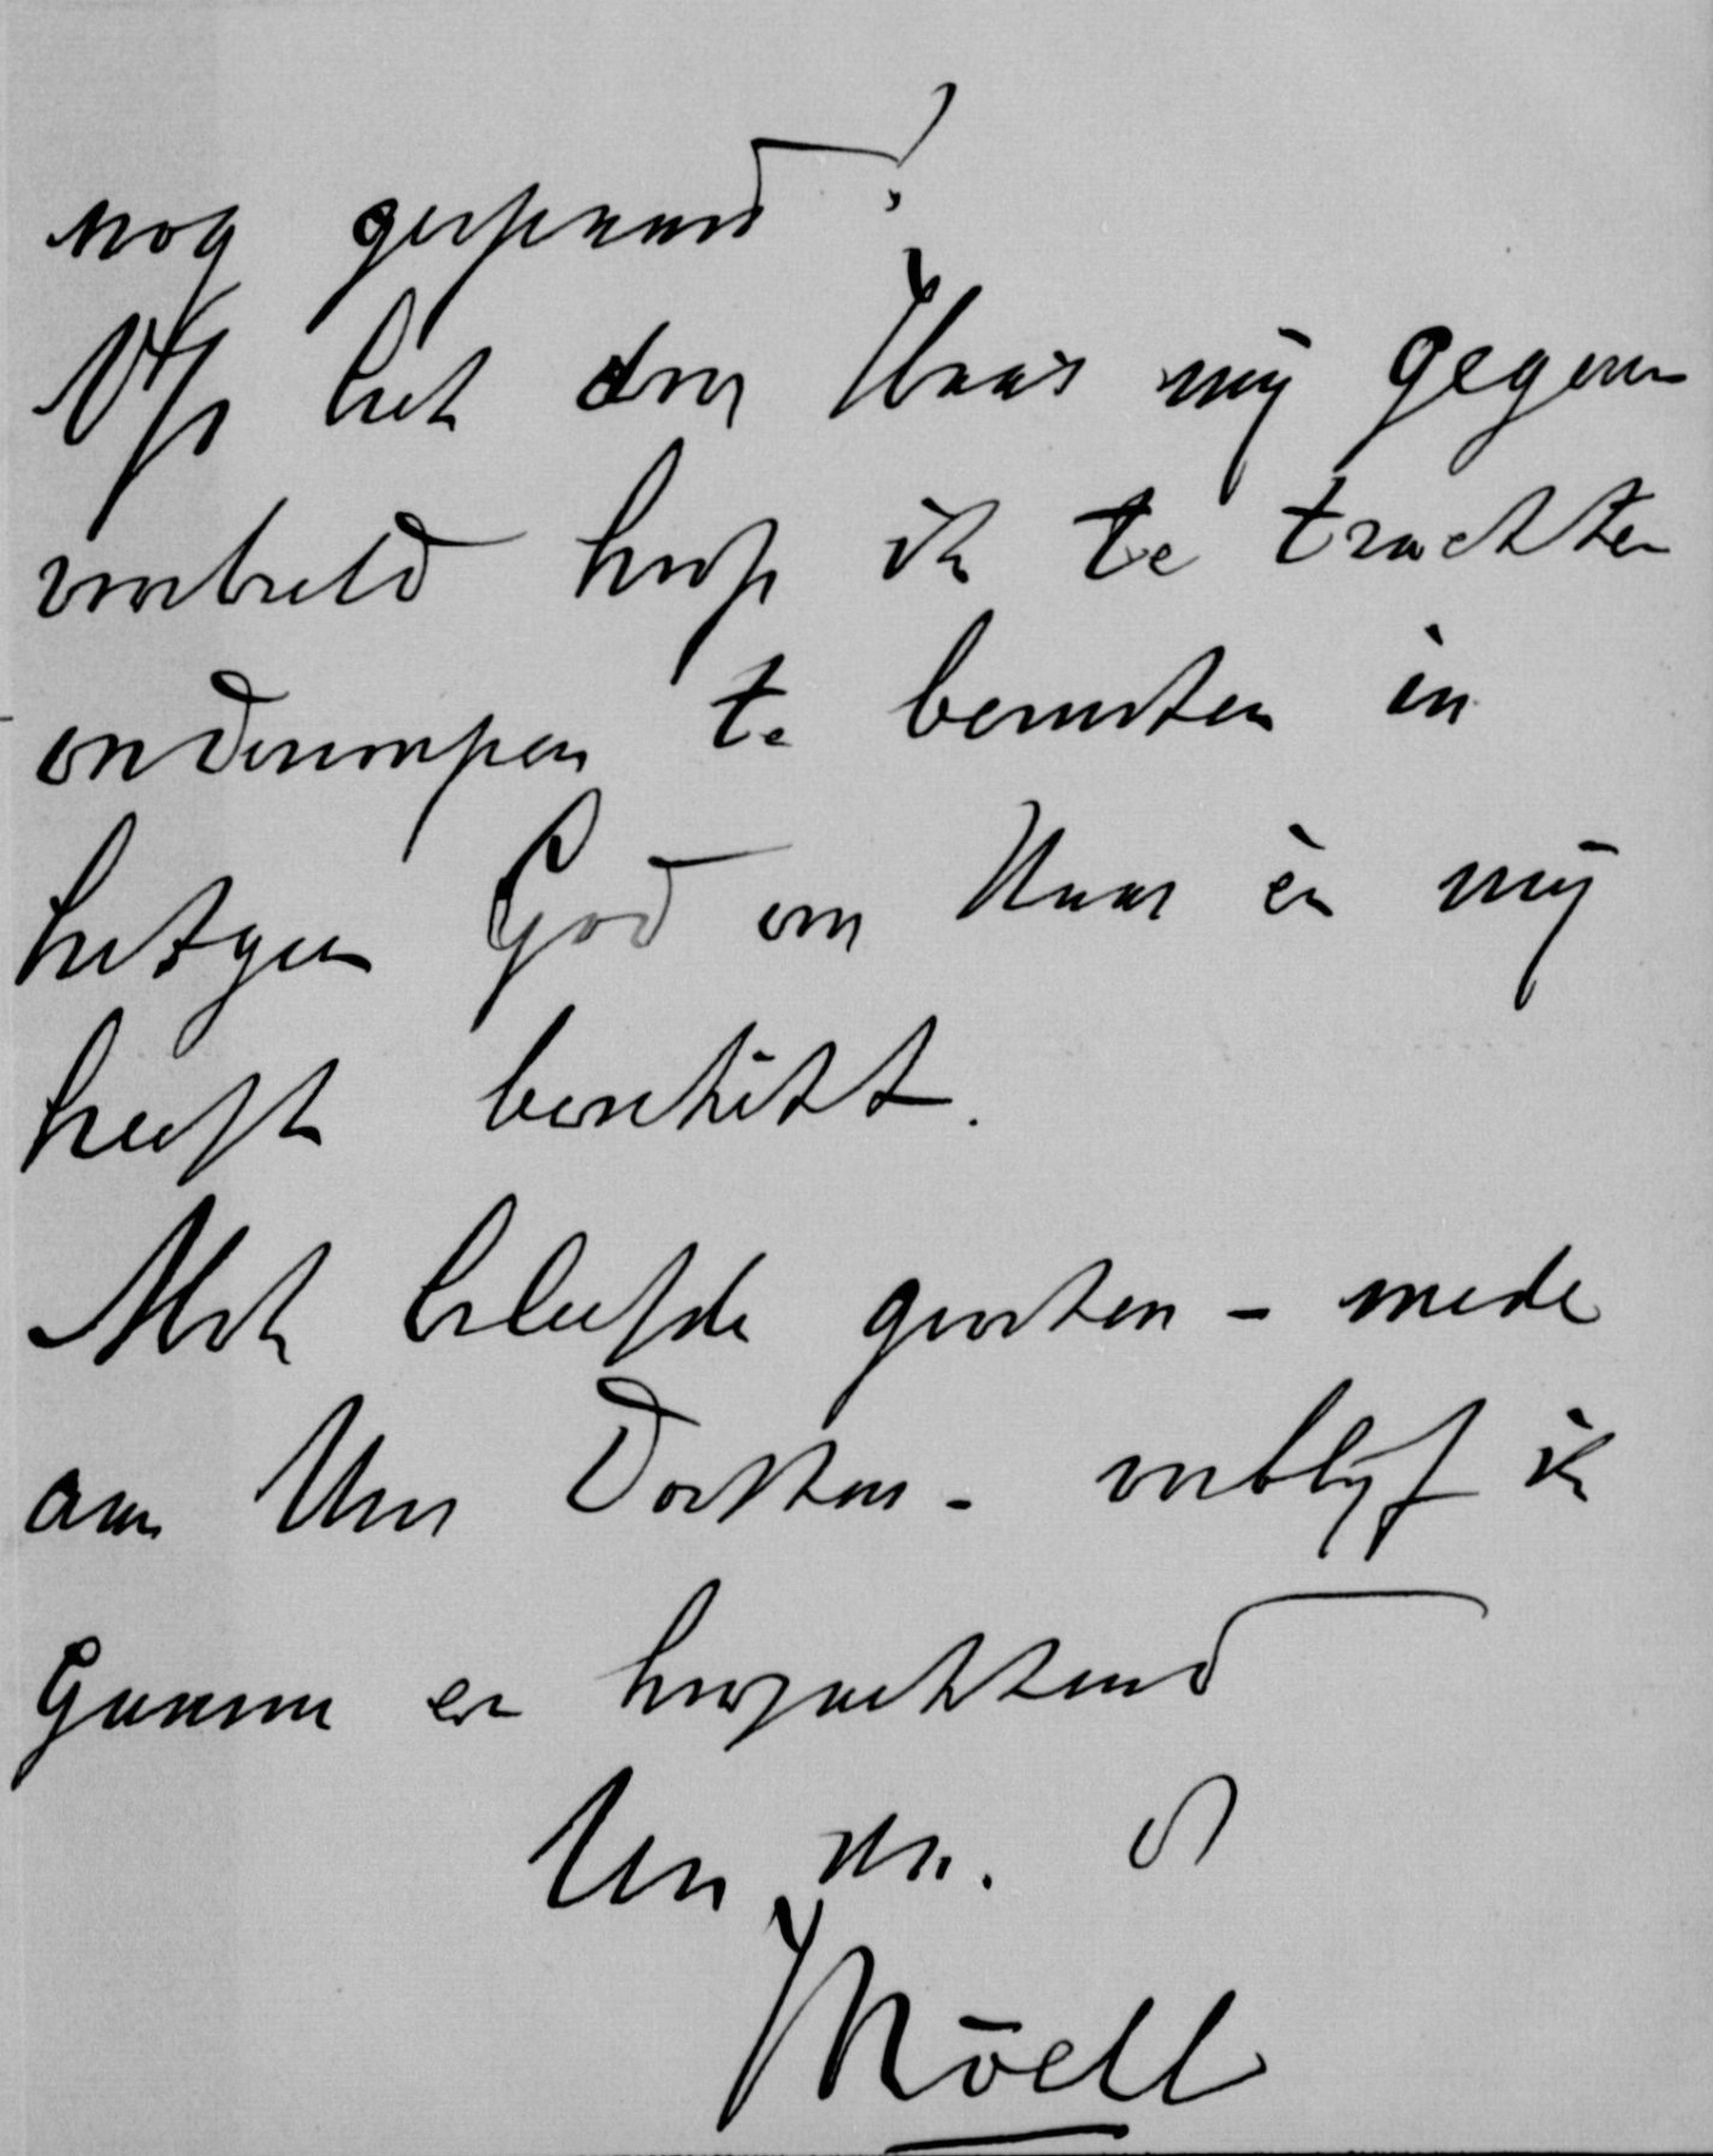 nog gespaard?
Op het door Haar mij gegeven
voorbeeld hoop ik te trachten
onderworpen te berusten in
hetgeen God over Haar en mij
heeft beschikt.
Met beleefde groeten - mede
aan Uwe Dochter - verblijf ik
Gaarne en hoogachtend
Uw dr.
Röell